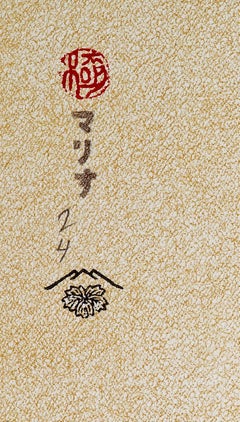 極
マリナ
24